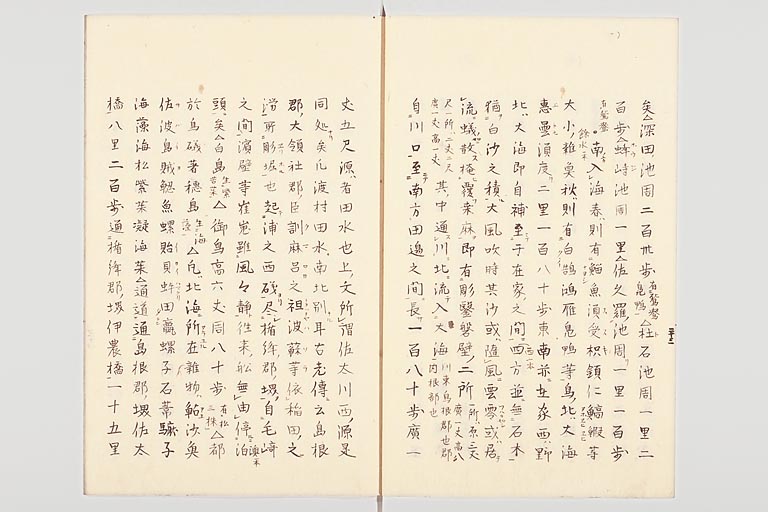 矣△深田池周二百卅歩有鴛鴦鳧鴨△杜石池周一里二
百歩△峠池周一里△佐久羅池周一里一百歩
有鴛鴦南入海春則有鯔魚須受枳鎮仁鰝鰕等
大小雜奥秋則有白鵠鴻雁鳧鴨等鳥北大海
惠曇濱度二里一百八十歩東南並在家西野
北大海即自補至于在家之間四方並無石木
猶白沙之積大風吹時其沙或隨風雲零或居
流蟻散掩覆桒麻即有彫鑿磐壁二所一所厚三丈廣一丈高八
尺一所二丈二尺廣一丈高一丈其中通川北流入大海川東島根郡也西郡内根部也
自川口至南方田邊之間長一百八十歩廣一
丈五尺源者田水也上文所謂佐太川西源是
同処矣凡波村田水南北別耳古老傳云島根
郡大領社部臣訓麻呂之祖波蘇等依稲田之
澇所彫堀也起浦之西礒尽楯縫郡堺自毛崎
之間濱壁等崔嵬雖風々静徃来舩無由停泊
頭矣△白島生紫苔菜△御島高六丈周八十歩有松三株△都
於島礒著穂島生海藻△凢北海所在雜物鮐沙奥
佐波烏賊鮑魚螺貽貝蚌田蠃螺子石葦䗩子
海藻海松紫菜凝海菜△通道通島根郡堺佐太
橋八里二百歩通楯縫郡堺伊農橋一十五里